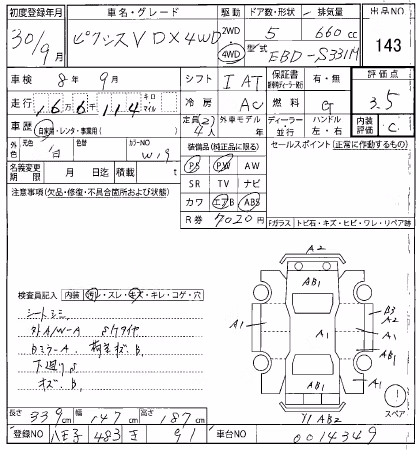 初度登録年月 車名・グレード 駆動 ドア数・形状 排気量 出品NO
30/9月 ピクシスV DX 4WD 2WD 4WD 5 660 cc 143
型式 EBD-S331M
車検 8年 9月 シフト IAT 保証書 有・無 評価点
走行 16万6千114 キロ マイル 冷房 AC 燃料 G 3.5
車歴 自家用・レンタ・事業用( ) 定員 2/4人 外車モデル 年 ディーラー 並行 ハンドル 左・右 内装評価 C
外色 元色 白 色替 カラーNO W19 装備品(純正品に限る) セールスポイント(正常に作動するもの)
名義変更期限 月 日迄 積載 t PS PW AW
注意事項(欠品・修復・不具合箇所および状態) SR TV ナビ
カワ エアB ABS
R券 7020円 Fガラス トビ石・キズ・ヒビ・ワレ・リペア跡
A2
AB1
検査員記入 内装 汚レ・スレ・キズ・キレ・コゲ・穴
シートシミ
外A/W-A
Bミラ-A 荷室キズ B1
下廻りS
オズ B1
A1 A1 A1 B3 A2
A1
AB1
A1
Y1 AB2
1 スペア
長さ 339cm 幅 147cm 高さ 187cm
登録NO 八王子 483 き 91 車台NO 0014349